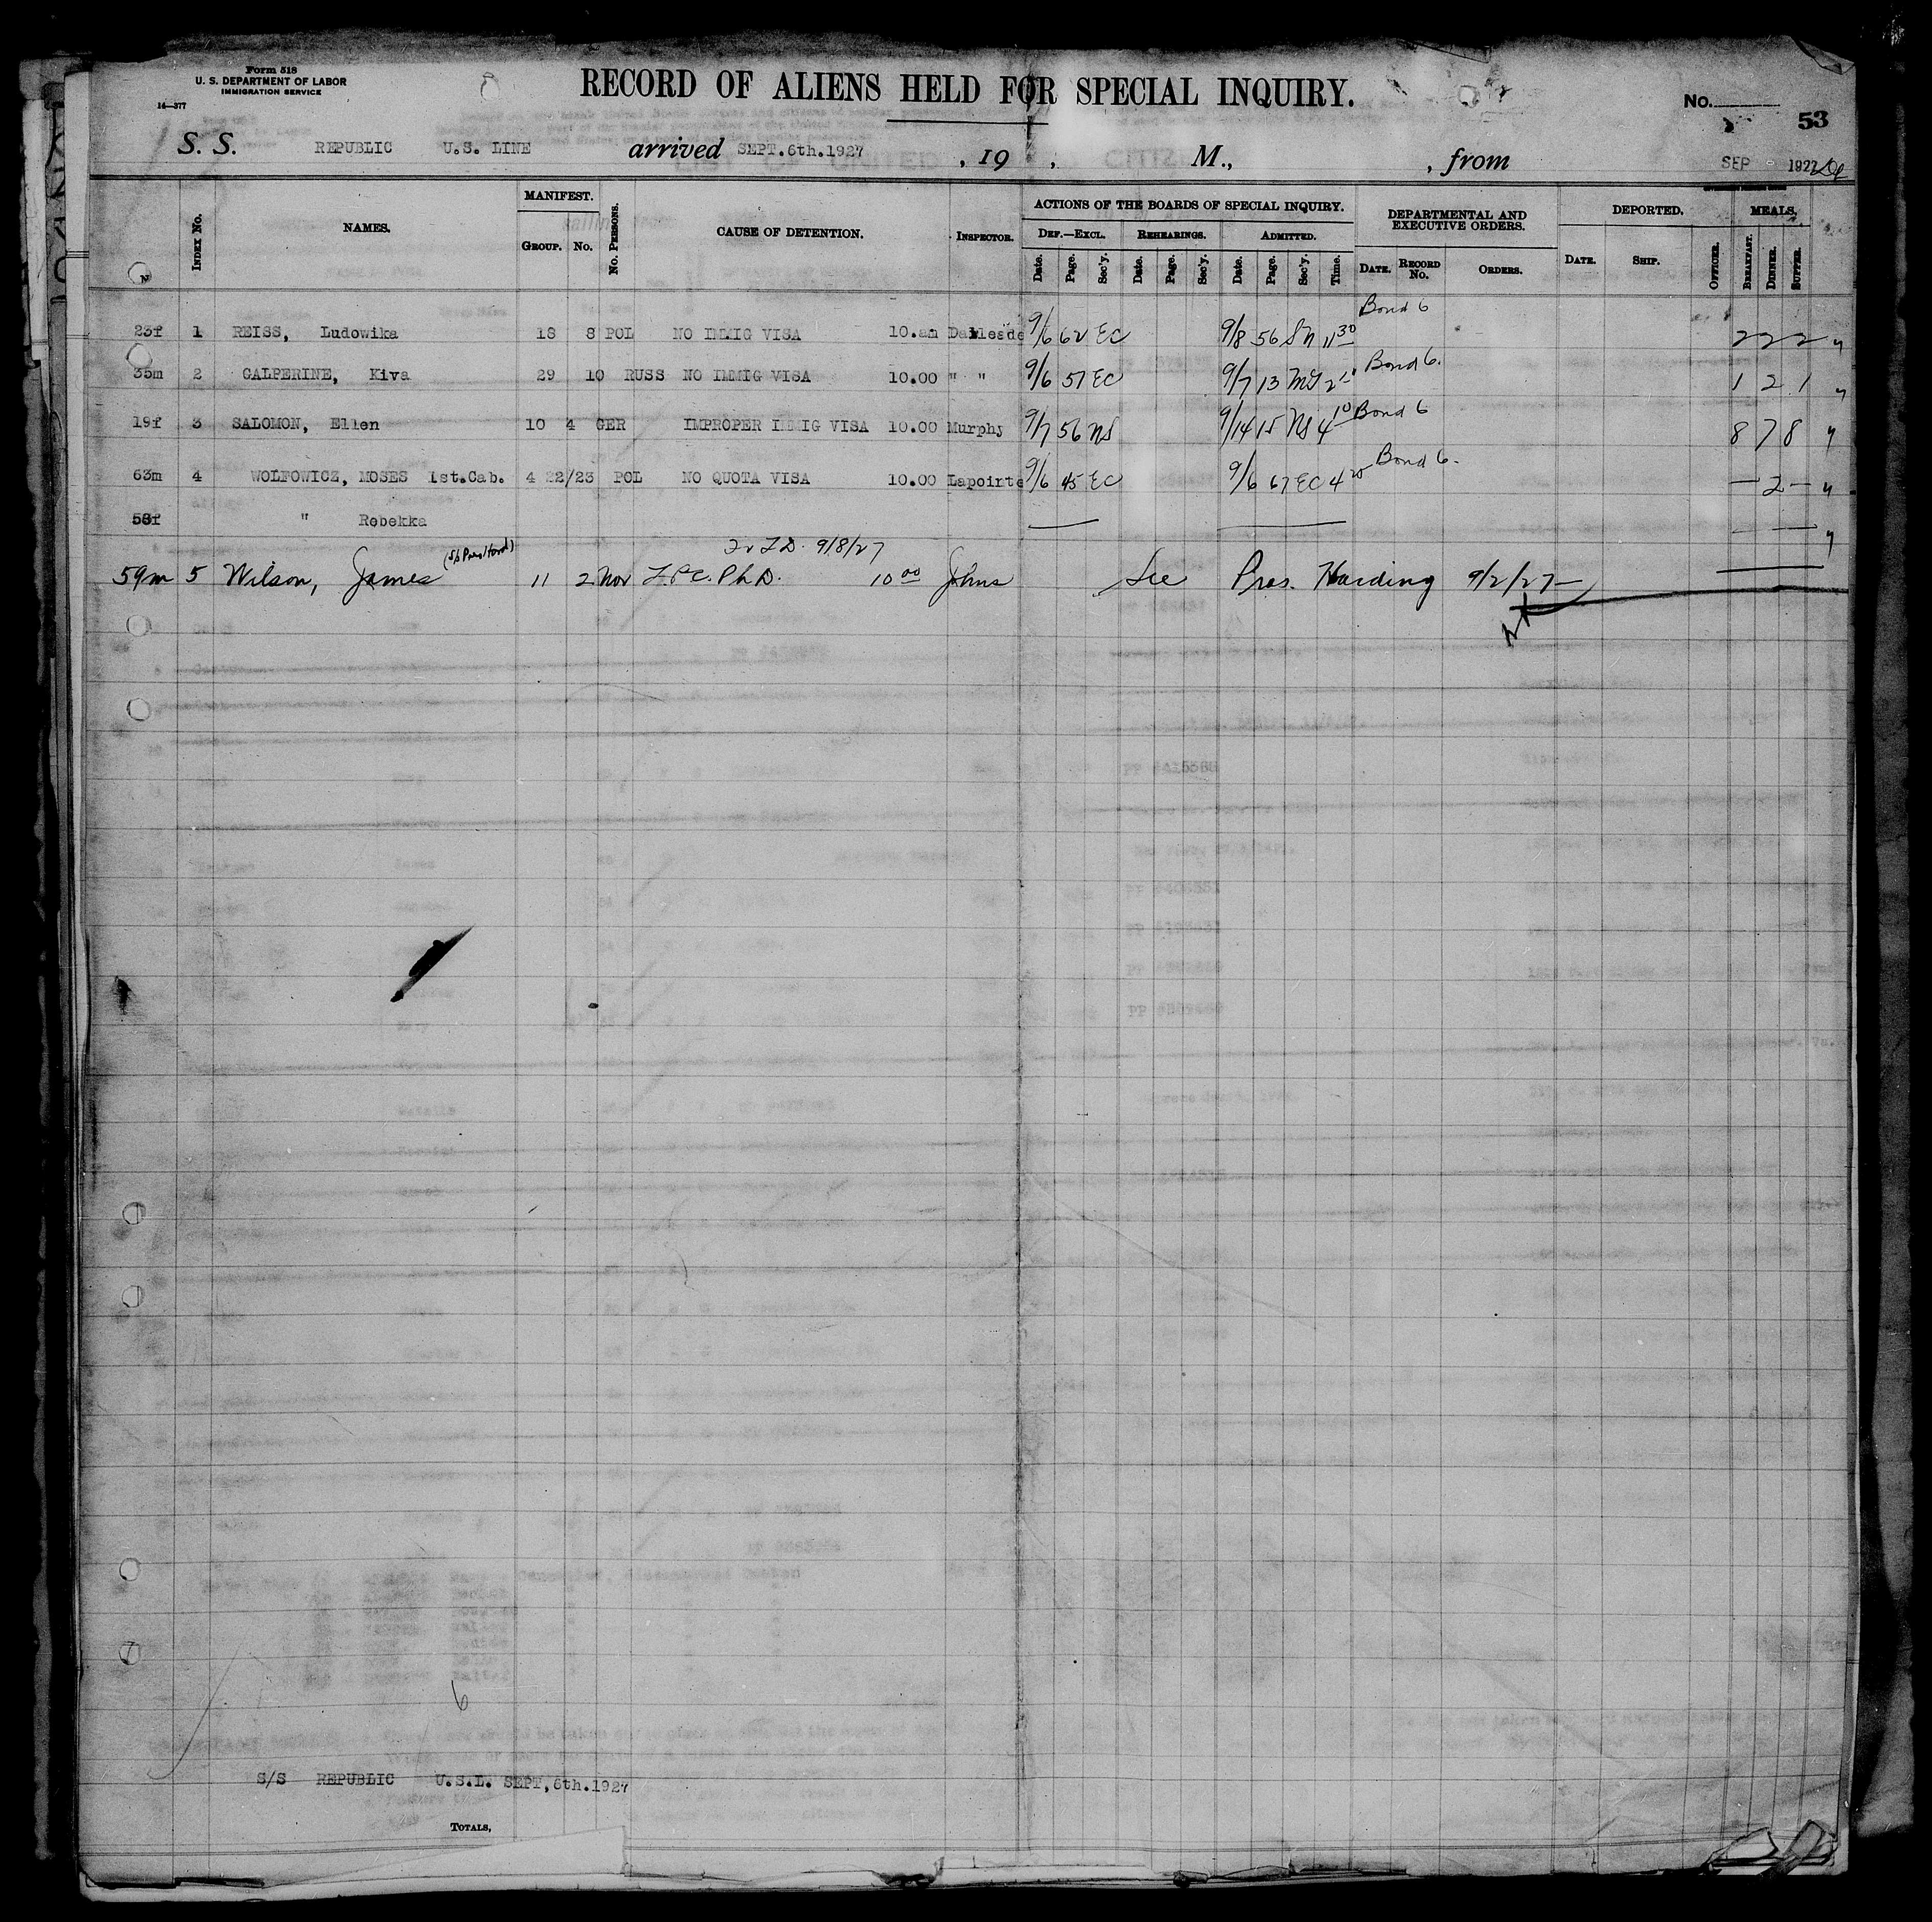 Form 518
U. S. DEPARTMENT OF LABOR
IMMIGRATION SERVICE
14—377
RECORD OF ALIENS HELD FOR SPECIAL INQUIRY.
No.
53
S. S. REPUBLIC U.S. LINE arrived SEPT.6th.1927, 19 , M., , from
SEP 192
INDEX No. NAMES. MANIFEST. GROUP. No. No. PERSONS. CAUSE OF DETENTION. INSPECTOR. ACTIONS OF THE BOARDS OF SPECIAL INQUIRY. DEF.—EXCL. Date. Page. Sec'y. REHEARINGS. Date. Page. Sec'y. ADMITTED. Date. Page. Sec'y. Time. DEPARTMENTAL AND EXECUTIVE ORDERS. DATE. RECORD No. ORDERS. DEPORTED. DATE. SHIP. OFFICER. MEALS. BREAKFAST. DINNER. SUPPER.
23f 1 REISS, Ludowika 18 8 POL NO IMMIG VISA 10.am 9/6 62 EC 9/8 56 11 30 Bond 6 2 2 2
35m 2 GALPERINE, Kiva 29 10 RUSS NO IMMIG VISA 10.00 " " 9/6 57 EC 9/7 13 Bond 6. 1 2 1
19f 3 SALOMON, Ellen 10 4 GER IMPROPER IMMIG VISA 10.00 Murphy 9/7 56 NS 9/14 15 NS 4 10 Bond 6 8 7 8
63m 4 WOLFOWICZ, MOSES 1st.Cab. 4 22/23 POL NO QUOTA VISA 10.00 Lapointe 9/6 45 EC 9/6 67 EC 4 Bond 6. — 2 —
58f " Rebekka
9/8/27
59m 5 Wilson, James 11 2 Nor L.P.C. Ph.D. 10 00 Johns See Pres. Harding 9/2/27—
6
S/S REPUBLIC U.S.L. SEPT,6th.1927
TOTALS,